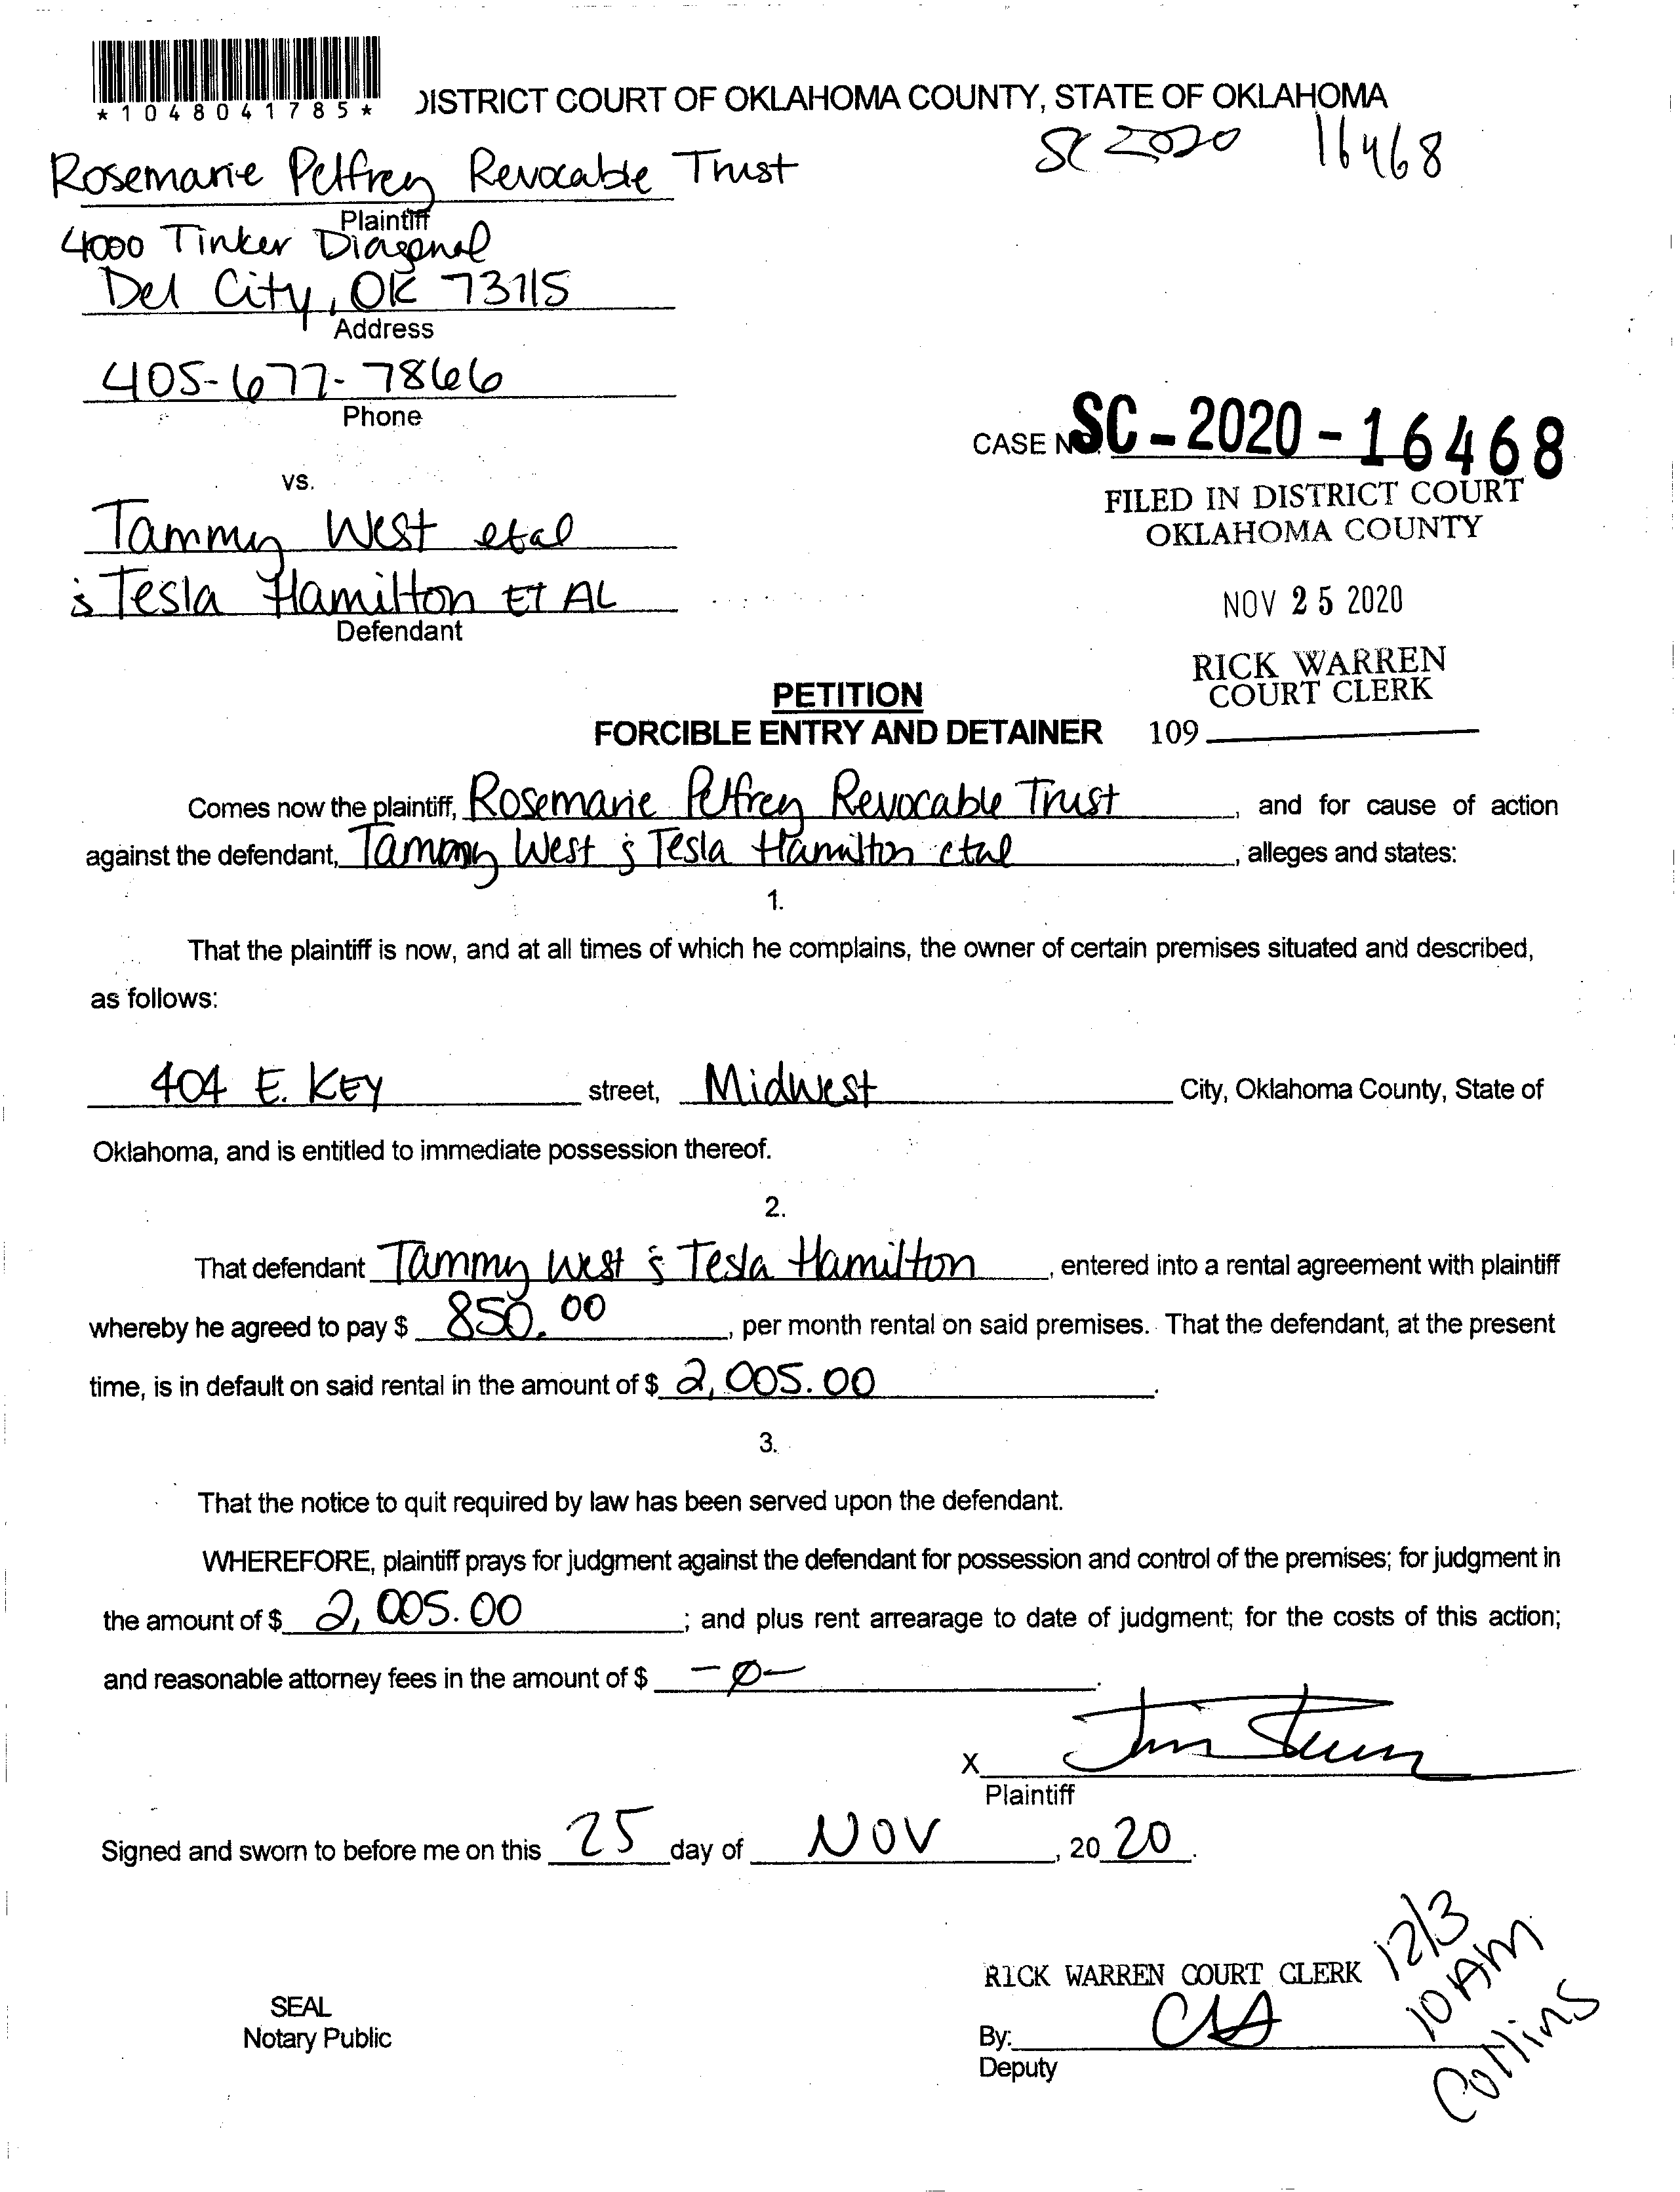 *1048041785*
DISTRICT COURT OF OKLAHOMA COUNTY, STATE OF OKLAHOMA
SC 2020 16468
Rosemarie Pelfrey Revocable Trust
Plaintiff
4000 Tinker Diagonal
Del City, OK 73115
Address
405-677-7866
Phone
CASE NO. SC-2020-16468
FILED IN DISTRICT COURT
OKLAHOMA COUNTY
vs.
Tammy West etal
& Tesla Hamilton ET AL
Defendant
NOV 25 2020
RICK WARREN
COURT CLERK
109
PETITION
FORCIBLE ENTRY AND DETAINER
Comes now the plaintiff, Rosemarie Pelfrey Revocable Trust, and for cause of action
against the defendant, Tammy West & Tesla Hamilton etal, alleges and states:
1.
That the plaintiff is now, and at all times of which he complains, the owner of certain premises situated and described,
as follows:
404 E. KEY street, Midwest City, Oklahoma County, State of
Oklahoma, and is entitled to immediate possession thereof.
2.
That defendant Tammy West & Tesla Hamilton, entered into a rental agreement with plaintiff
whereby he agreed to pay $ 850.00, per month rental on said premises. That the defendant, at the present
time, is in default on said rental in the amount of $ 2,005.00.
3.
That the notice to quit required by law has been served upon the defendant.
WHEREFORE, plaintiff prays for judgment against the defendant for possession and control of the premises; for judgment in
the amount of $ 2,005.00; and plus rent arrearage to date of judgment; for the costs of this action;
and reasonable attorney fees in the amount of $ -0-.
X
Plaintiff
Signed and sworn to before me on this 25 day of NOV, 2020.
12/3
10 AM
Collins
RICK WARREN COURT CLERK
SEAL
Notary Public
By:
Deputy